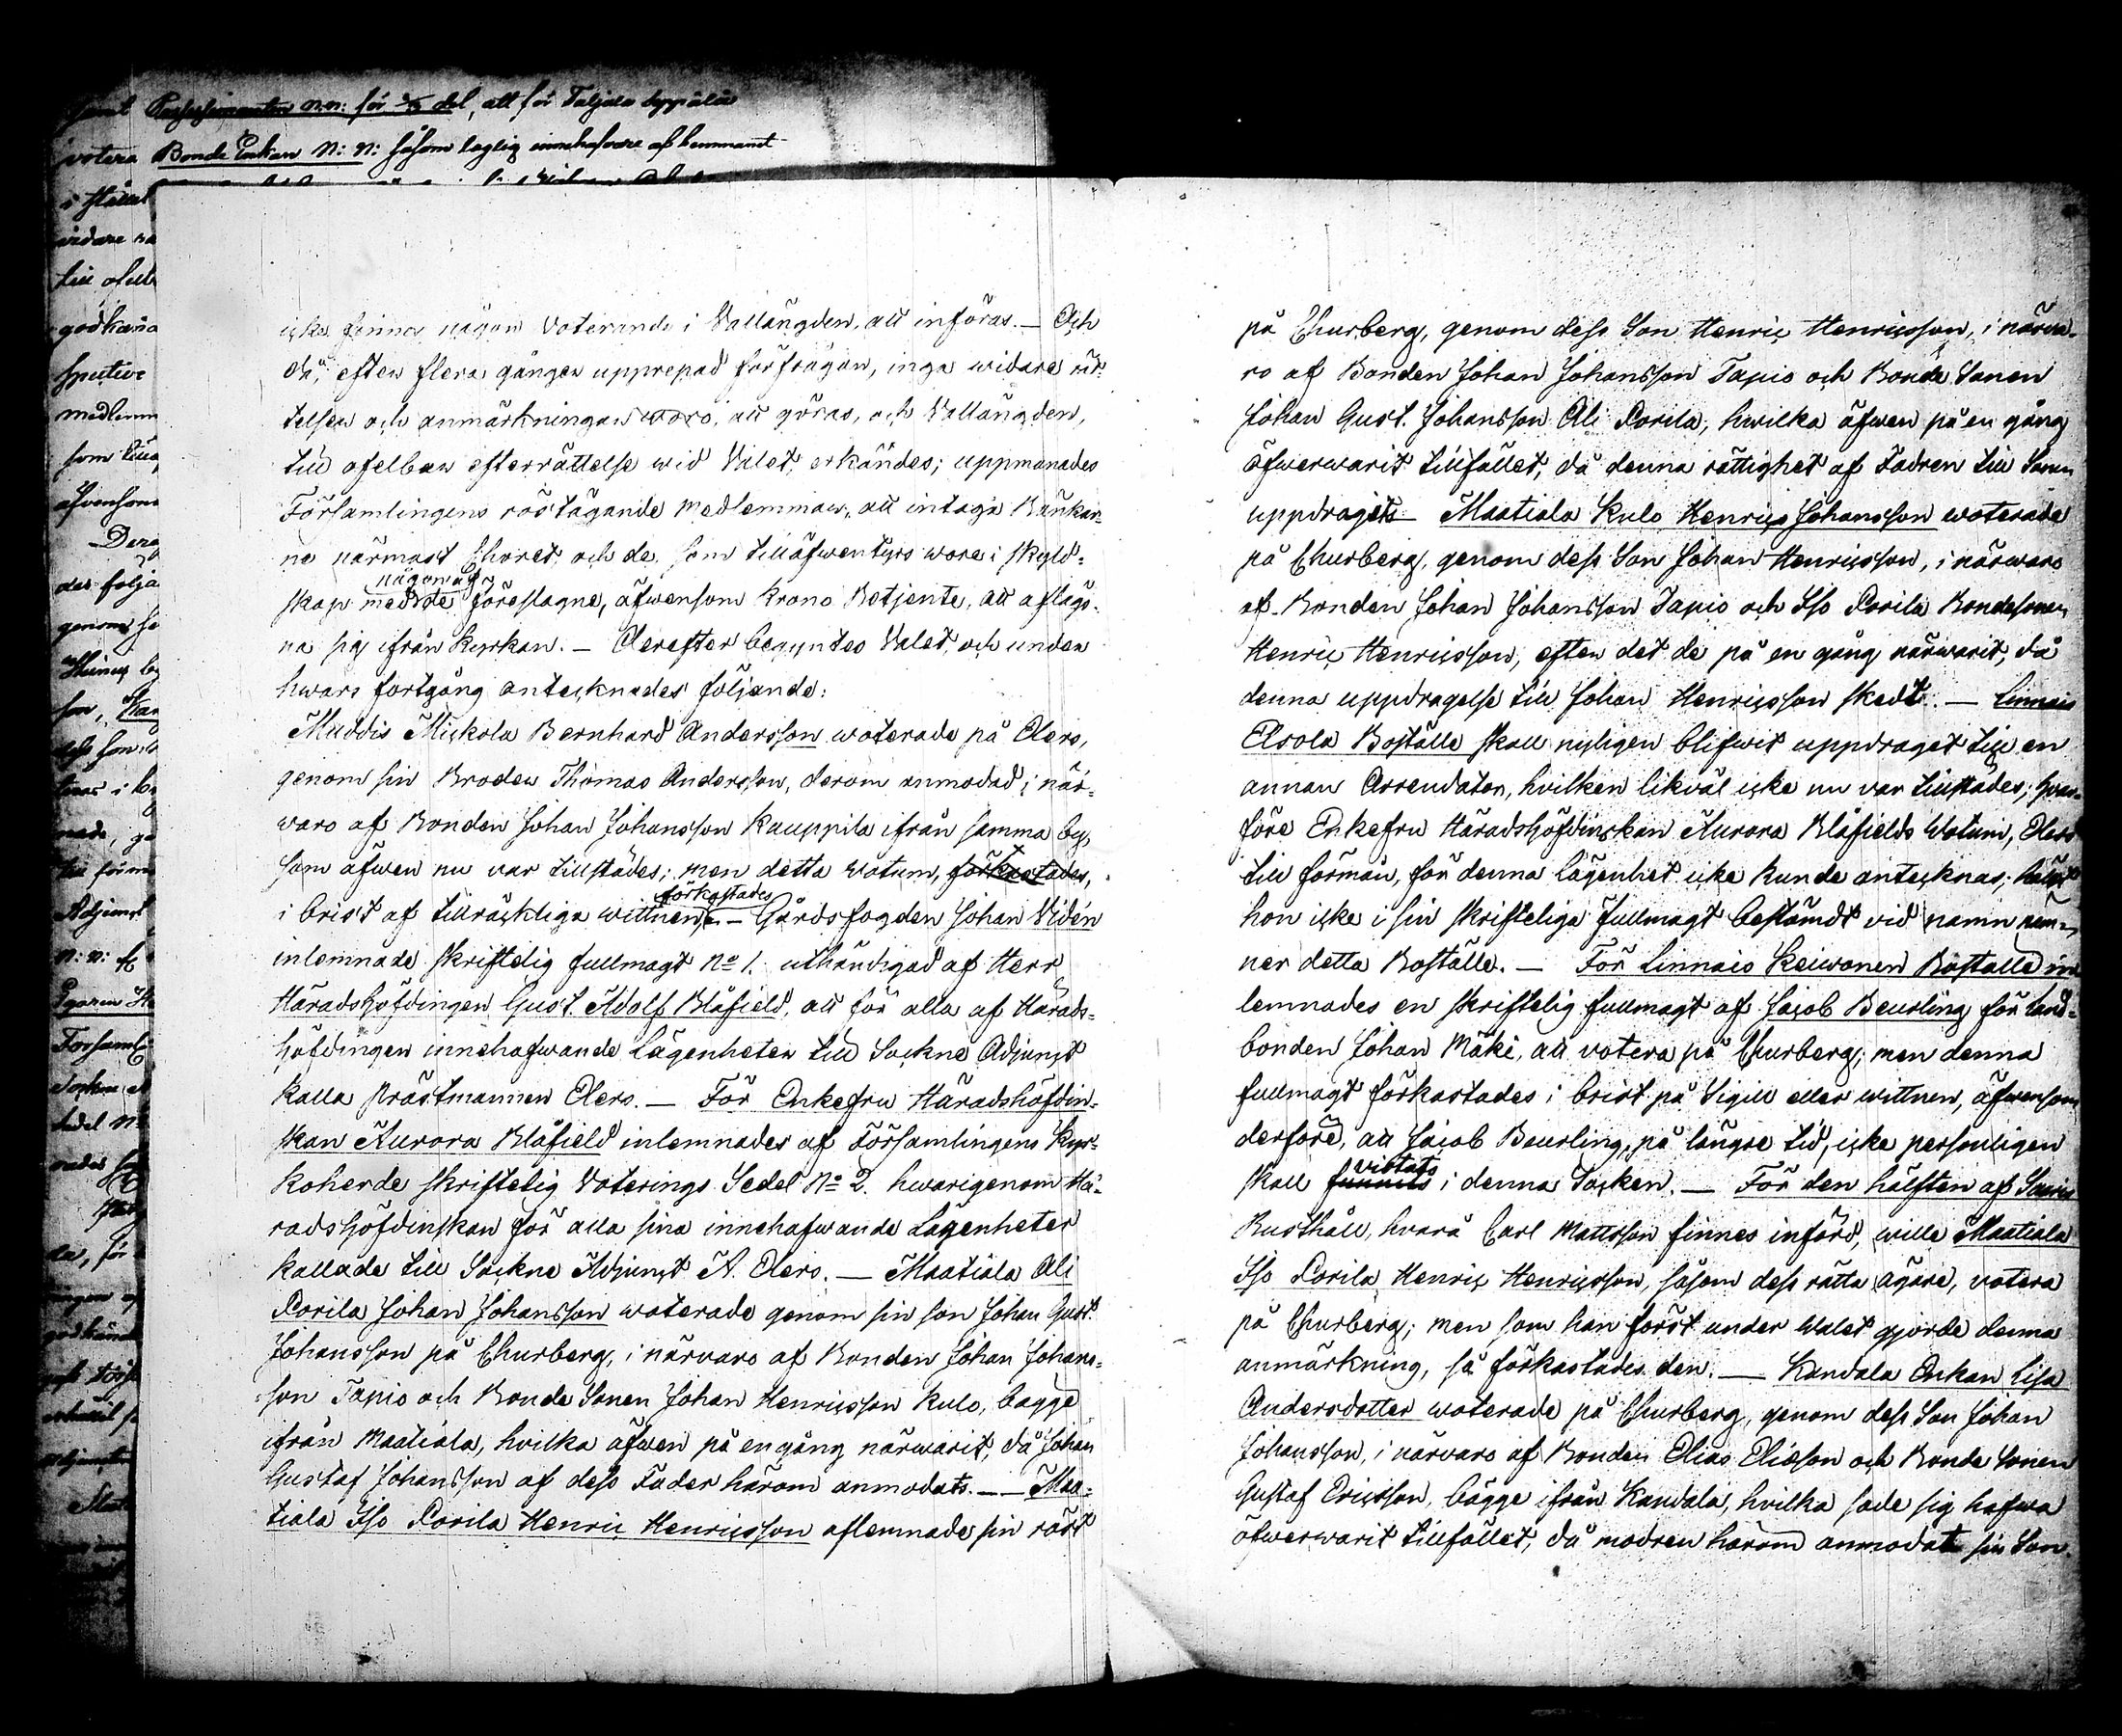 samt Possessionaten n.n: för 2/3 del, att för Taljala
votera Bonde Enkan N: N: såsom laglig innehafvare af hemmanet
i stället
vidare
till
godkän
medlem
som
äfvensom
des följa
genom
Adjunct
n: n:
Församl
icke finnes någon Voterande i Vallängden, att införas. — Och
då, efter flera gånger upprepad förfrågan, inga widare rät-
telser och anmärkningar woro, att göras, och Vallängden,
till ofelbar efterrättelse wid Valet, erkändes; uppmanades
Församlingens röstägande medlemmar, att intaga Bänkar-
na närmast Choret, och de, som tilläfwentyrs wore i skyld-
någon af
skap med de föreslagne, äfwensom Krono Betjente, att aflägs-
na sig ifrån kyrkan. — Derefter begyntes Valet, och under
hwars fortgång antecknades följande:
Muddis Mickola Bernhard Andersson woterade på Elers,
genom sin Broder Thomas Andersson, derom anmodad i när-
waro af Bonden Johan Johansson Kauppila ifrån samma by,
som äfwen nu var tillstädes; men detta Votum, förkastades,
förkastades
i brist af tillräckliga wittnen. — Gårdsfogden Johan Widén
inlemnade skriftelig fullmagt No 1. uthändigad af Herr
Häradshöfdingen Gust. Adolf Blåfield, att för alla af Härads-
höfdingen innehafwande Lägenheter till Sockne Adjunct
kalla Prästmannen Elers. — För Enkefru Häradshöfdin-
skan Aurora Blåfield inlemnades af Församlingens Kyr-
koherde skriftelig Voterings Sedel No 2. hwarigenom Hä-
radshöfdinskan för alla sina innehafwande Lägenheter
kallade till Sockne Adjunct A. Elers. — Maatiala Ali
Lorila Johan Johansson woterade genom sin son Johan Gust.
Johansson på Churberg, i närvaro af Bonden Johan Johans-
son Tapio och Bonde Sonen Johan Henricsson Kulo, bägge
ifrån Maatiala, hvilka äfwen på en gång närwarit, då Johan
Gustaf Johansson af dess Fader härom anmodats. — Maa-
tiala Iso Lorila Henric Henricsson aflemnade sin röst
på Churberg, genom dess Son Henric Henricsson, i närwa-
ro af Bonden Johan Johansson Tapio och Bonde Sonen
Johan Gust. Johansson Ali Lorila, hwilka äfwen på en gång
öfwerwarit tillfället, då denna rättighet af Fadren till Sonen
uppdragits — Maatiala Kulo Henric Johansson woterade
på Churberg, genom dess Son Johan Henricsson, i närwaro
af Bonden Johan Johansson Tapio och Iso Lorila Bondesonen
Henric Henricsson, efter det de på en gång närwarit, då
denna uppdragelse till Johan Henricsson skedt. — Linnais
Elsola Boställe skall nyligen blifwit uppdraget till en
annan Arrendator, hvilken likväl icke nu var tillstädes; hvar-
före Enkefru Häradshöfdinskan Aurora Blåfields Wotum, Elers
till förmån, för denna Lägenhet icke kunde antecknas, helst
hon icke i sin skrifteliga fullmagt bestämdt vid namn näm-
ner detta Boställe. — För Linnais Keiwonen Boställe in-
lemnades en skriftelig fullmagt af Jacob Beurling för Land-
bonden Johan Mäki, att votera på Churberg; men denna
fullmagt förkastades i brist på Sigill eller wittnen, äfwensom
derföre, att Jacob Beurling, på längre tid, icke personligen
vistats
skall funnits i denna Socken. — För den hälften af
Rusthåll, hvarå Carl Mattsson finnes införd, wille Maatiala
Iso Lorila Henric Henricsson, såsom dess rätta ägare, votera
på Churberg; men som han först under Valet gjorde denna
anmärkning, så förkastades den. — Kandala Enkan Lisa
Andersdotter woterade på Churberg, genom dess Son Johan
Johansson, i närvaro af Bonden Elias Eliasson och Bonde Sonen
Gustaf Ericsson, bägge ifrån Kandala, hvilka sade sig hafwa
öfwerwarit tillfället, då modren härom anmodat sin Son.